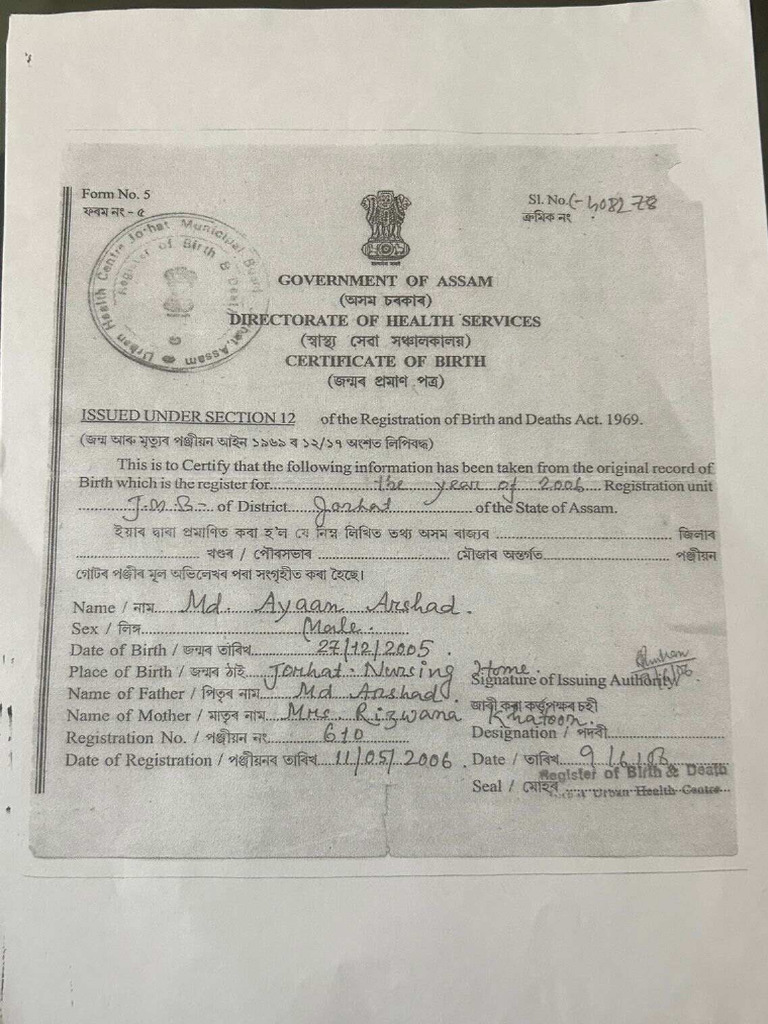 Form No. 5
ফৰম নং - ৫
Sl. No. C- 408278
ক্ৰমিক নং
Urban Health Centre Jorhat Municipal Board Jorhat, Assam
Register of Birth & Death
GOVERNMENT OF ASSAM
(অসম চৰকাৰ)
DIRECTORATE OF HEALTH SERVICES
(স্বাস্থ্য সেৱা সঞ্চালকালয়)
CERTIFICATE OF BIRTH
(জন্মৰ প্ৰমাণ পত্ৰ)
ISSUED UNDER SECTION 12 of the Registration of Birth and Deaths Act. 1969.
(জন্ম আৰু মৃত্যুৰ পঞ্জীয়ন আইন ১৯৬৯ ৰ ১২/১৭ অংশত লিপিবদ্ধ)
This is to Certify that the following information has been taken from the original record of
Birth which is the register for the year of 2006 Registration unit
J.M.B- of District Jorhat of the State of Assam.
ইয়াৰ দ্বাৰা প্ৰমাণিত কৰা হ'ল যে নিম্ন লিখিত তথ্য অসম ৰাজ্যৰ জিলাৰ
খণ্ডৰ / পৌৰসভাৰ মৌজাৰ অন্তৰ্গত পঞ্জীয়ন
গোটৰ পঞ্জীৰ মূল অভিলেখৰ পৰা সংগৃহীত কৰা হৈছে।
Name / নাম Md. Ayaan Arshad.
Sex / লিঙ্গ Male.
Date of Birth / জন্মৰ তাৰিখ 27/12/2005.
Place of Birth / জন্মৰ ঠাই Jorhat Nursing Home.
Signature of Issuing Authority
Name of Father / পিতৃৰ নাম Md Arshad.
জাৰী কৰা কৰ্তৃপক্ষৰ চহী
Name of Mother / মাতৃৰ নাম Mrs Rizwana Khatoon.
Designation / পদবী
Registration No. / পঞ্জীয়ন নং 610
Date of Registration / পঞ্জীয়নৰ তাৰিখ 11/05/2006.
Date / তাৰিখ 9/6/06
Register of Birth & Death
Seal / মোহৰ Urban Health Centre